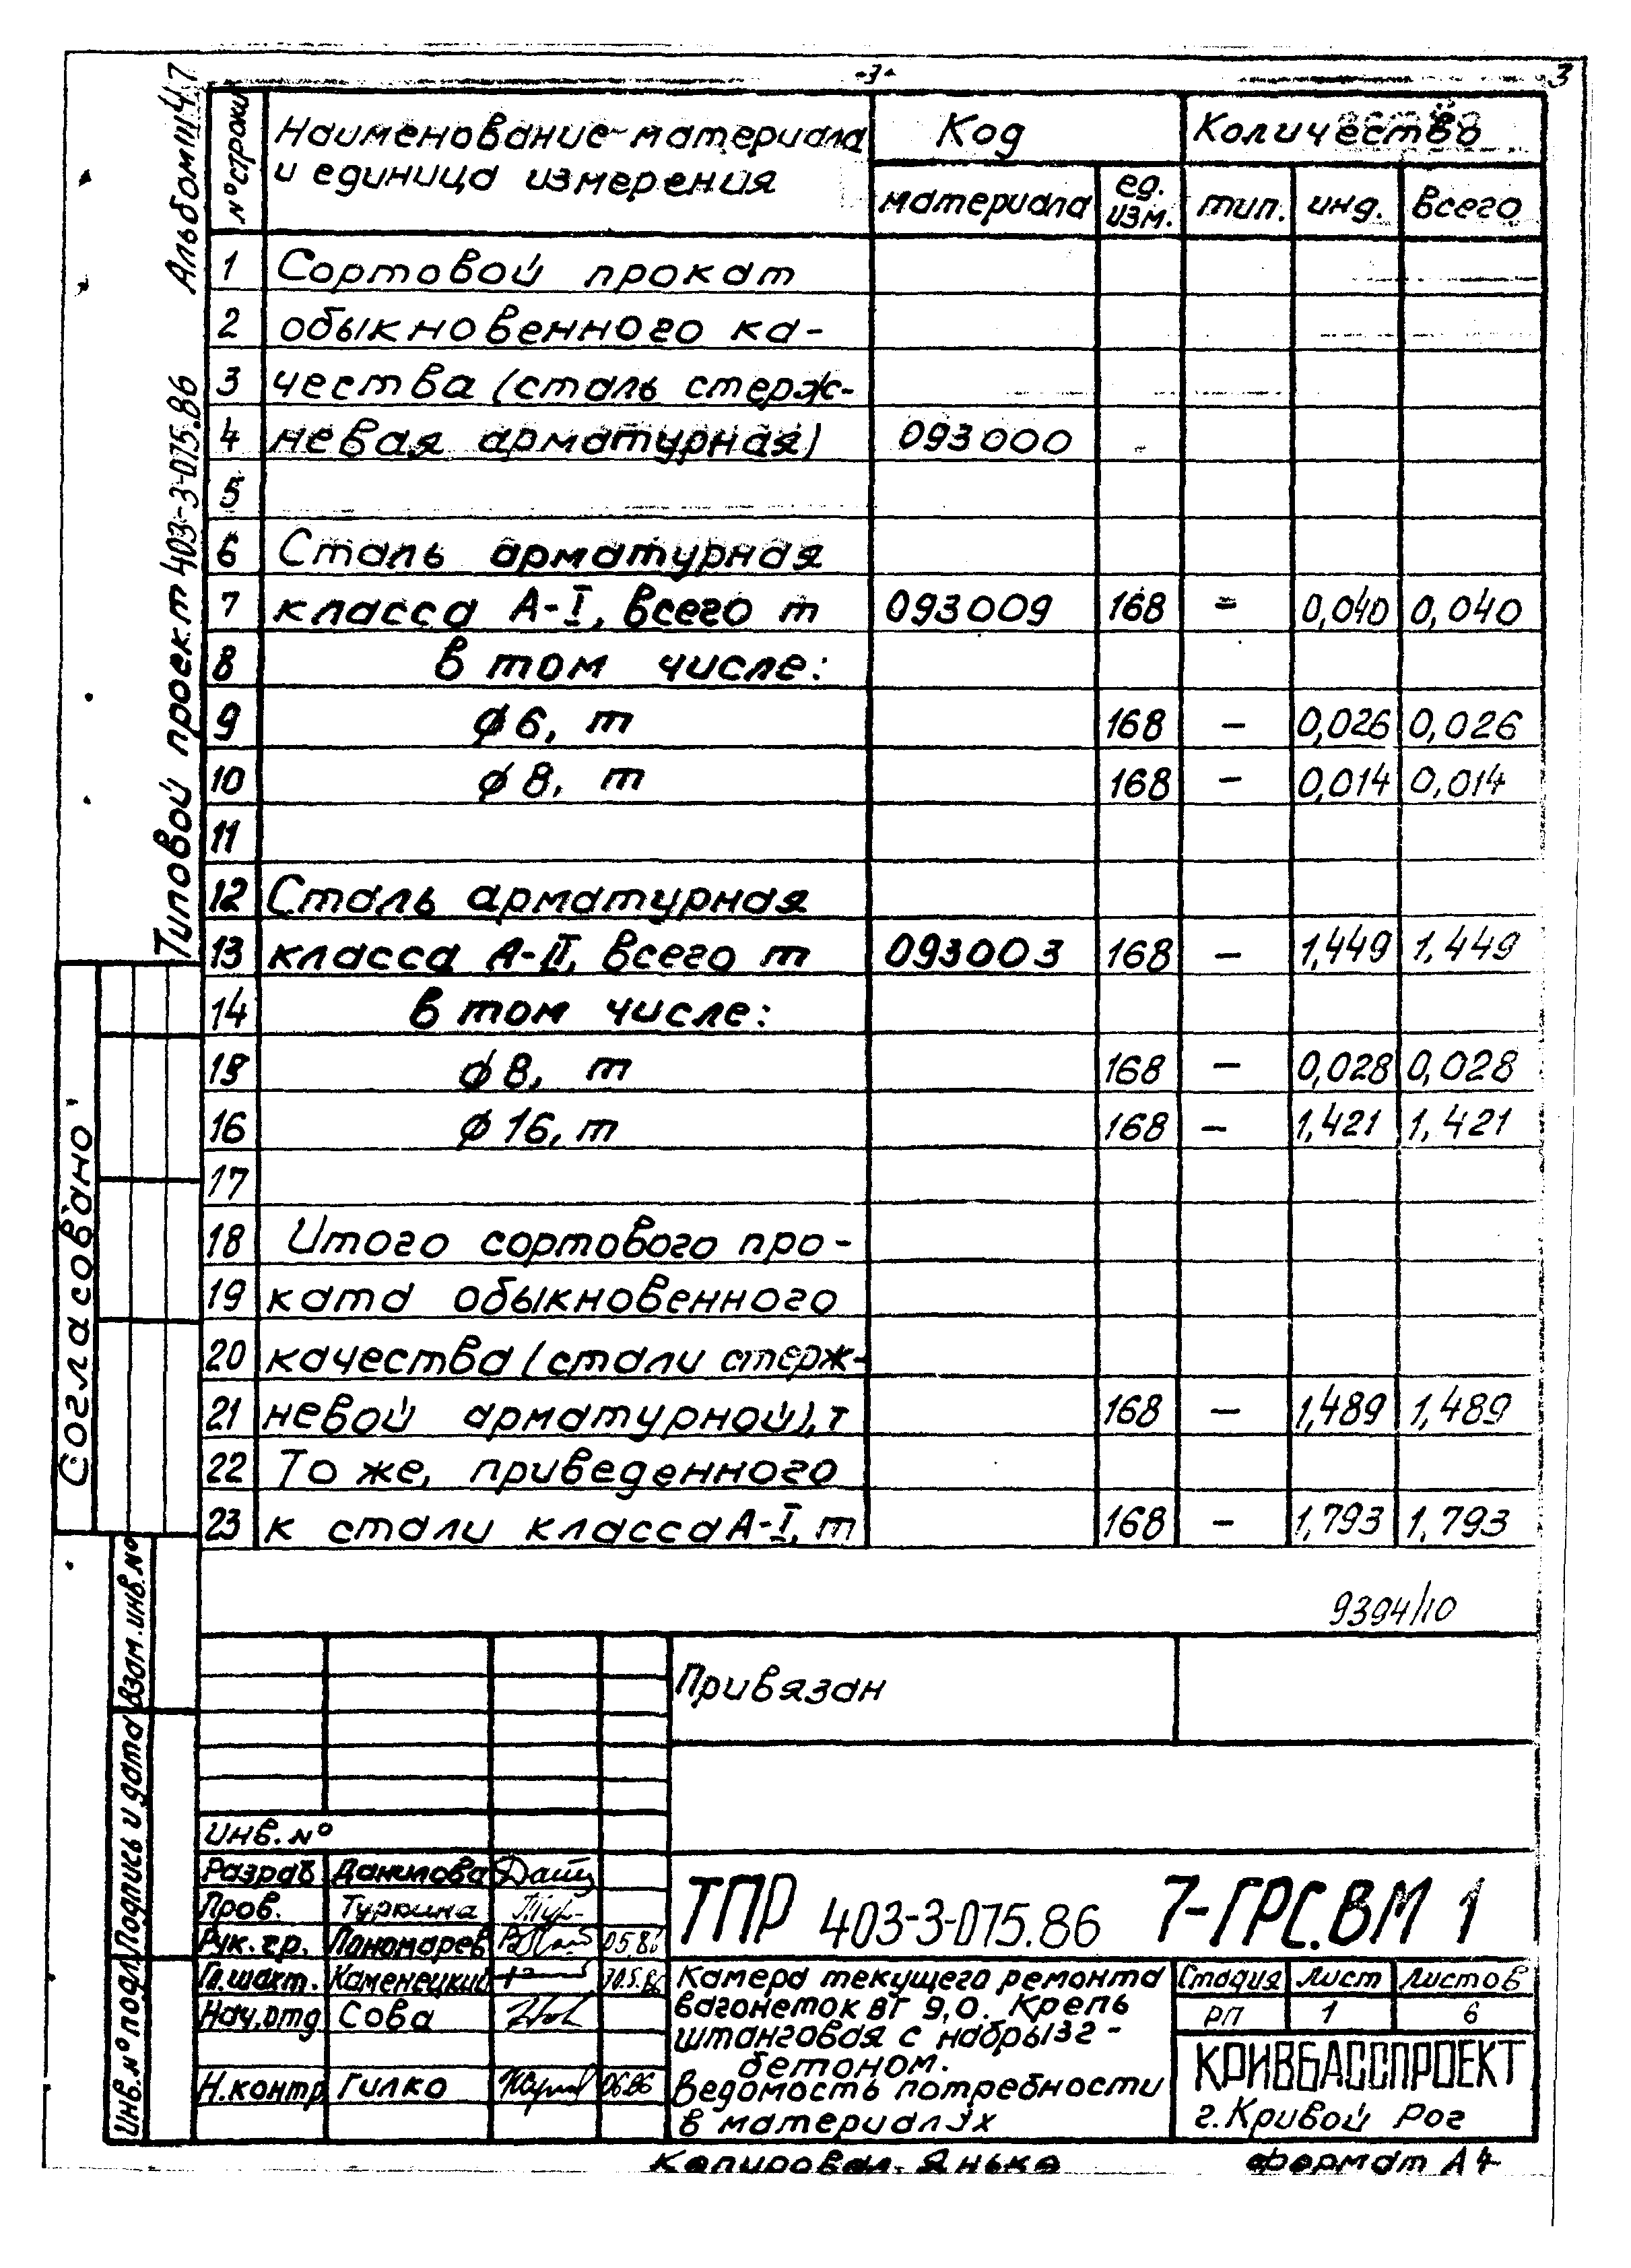 -3-
3
Альбом III ч 7
Типовой проект 403-3-075.86
№ строки
Наименование материала
и единица измерения
Код
Количество
материала
ед.
изм.
тип.
инд.
всего
1 Сортовой прокат
2 обыкновенного ка-
3 чества (сталь стерж-
4 невая арматурная) 093000
5
6 Сталь арматурная
7 класса А-I, всего т 093009 168 – 0,040 0,040
8 в том числе:
9 ϕ6, т 168 – 0,026 0,026
10 ϕ8, т 168 – 0,014 0,014
11
12 Сталь арматурная
13 класса А-II, всего т 093003 168 – 1,449 1,449
14 в том числе:
15 ϕ8, т 168 – 0,028 0,028
16 ϕ16, т 168 – 1,421 1,421
17
18 Итого сортового про-
19 ката обыкновенного
20 качества (стали стерж-
21 невой арматурной), т 168 – 1,489 1,489
22 То же, приведенного
23 к стали класса А-I, т 168 – 1,793 1,793
Согласовано
Взам. инв. №
Подпись и дата
Инв. № подл.
9394/10
Привязан
Инв. №
Разраб Данилова
Пров. Туркина
Рук. гр. Пономарев 05.86
Гл. шахт. Каменецкий 70.5.86
Нач. отд Сова
Н. контр Гилко 06.86
ТПР 403-3-075.86 7-ГРС.ВМ 1
Камера текущего ремонта
вагонеток ВГ 9,0. Крепь
штанговая с набрызг-
бетоном.
Ведомость потребности
в материалах
Стадия Лист Листов
РП 1 6
КРИВБАССПРОЕКТ
г. Кривой Рог
Копировал. Янько
формат А4